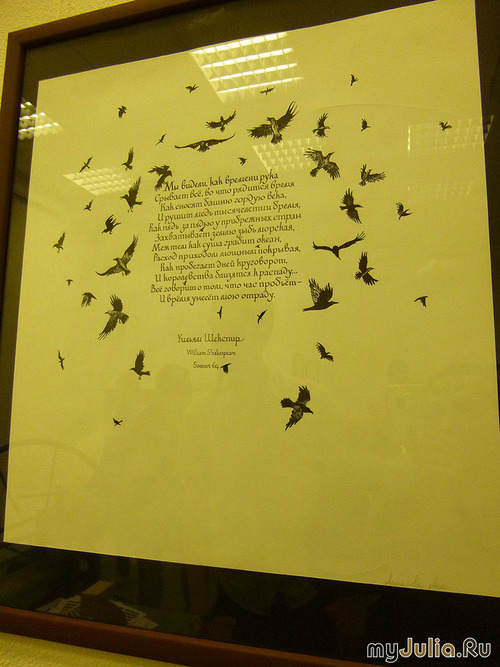 Мы видели, как времени рука
Срывает всё, во что рядится время
Как сносят башню гордую века,
И рушит медь тысячелетий бремя,
Как пядь за пядью у прибрежных стран
Захватывает землю зыбь морская,
Меж тем как суша грабит океан,
Расход приходом мощным покрывая,
Как пробегает дней круговорот,
И королевства близятся к распаду...
Всё говорит о том, что час пробьёт –
И время унесёт мою отраду.
Уильям Шекспир
William Shakespeare
Sonnet 64
myJulia.Ru